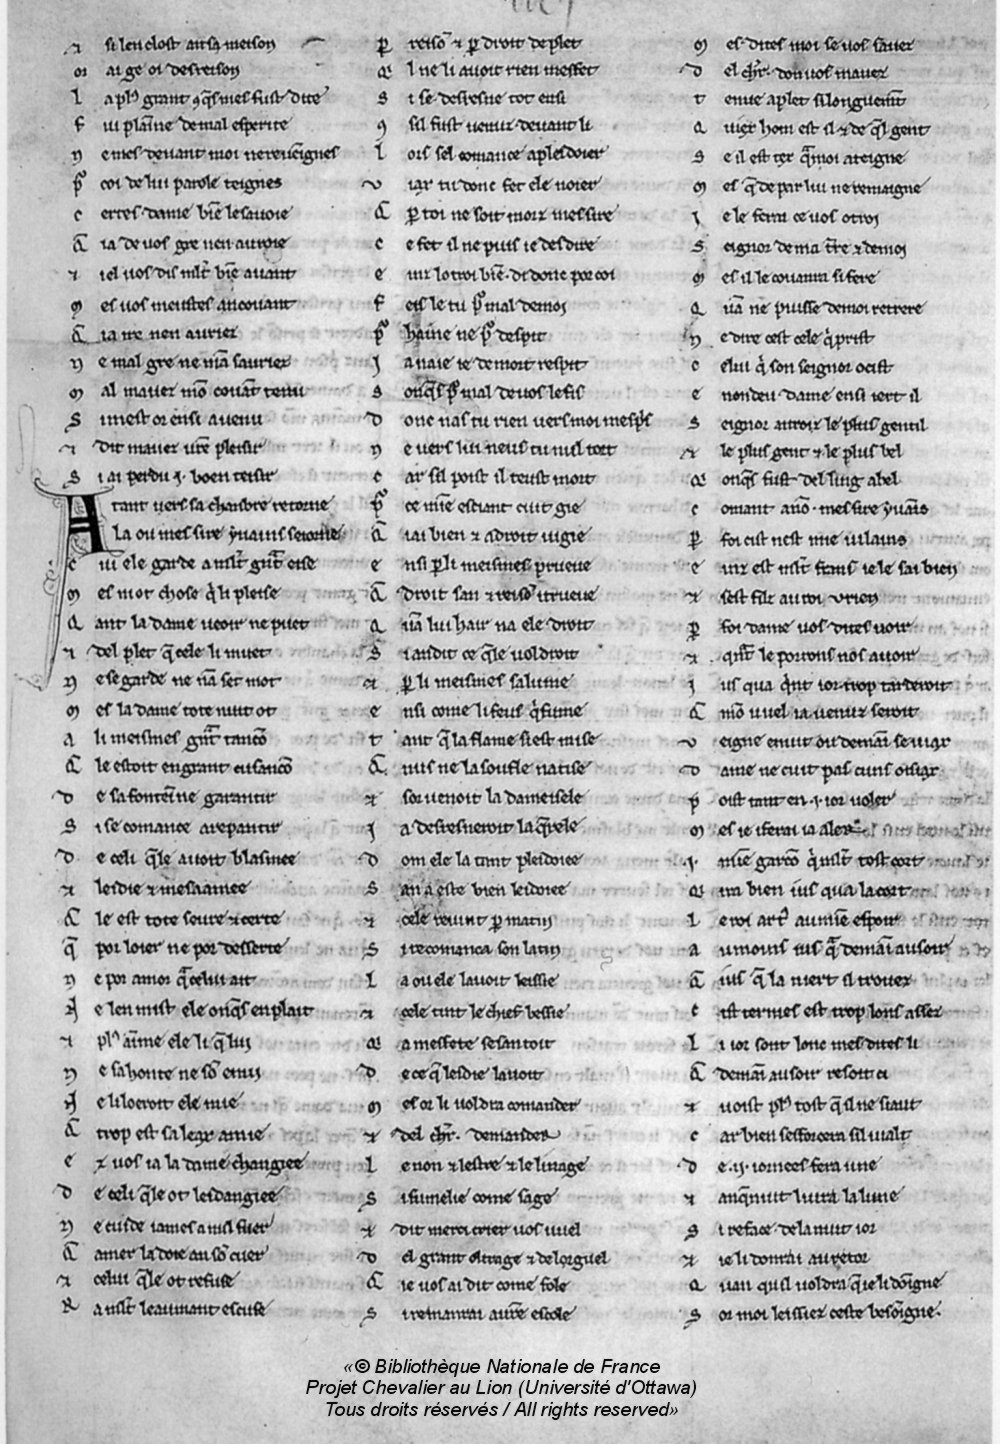 & si len clost an sa meison
Oi ai ge oi desreison
L a plus grant conques mes fust dite
F ui plainne de mal esperite
N e mes devant moi ne reveignes
P̃ coi de lui parole teignes
C ertes dame biẽ le savoie
Q ia de vos gre nen avroie
& iel vos dis mlt̃ biẽ avant
M es vos meistes an covant
Q ia ire nen avriez
N e mal gre ne mã savriez
M al mavez mõ covãt tenu
S i mest or ensi avenu
& dit mavez vrẽ pleisir
S i ai perdu .i. boen teisir
A tant vers sa chanbre retorne
L a ou mes sire yvains seiorne
C ui ele garde a mlt̃ grãt eise
M es ni ot chose q̇ li pleise
Q ant la dame veoir ne puet
& del plet q̃ cele li muet
N e se garde ne nã set mot
M es la dame tote nuit ot
A li meismes grãt tancõ
Q le estoit en grant cusancõ
D e sa fonteinne garantir
S i se comance a repantir
D e celi q̃le avoit blasmee
& leidie & mesaamee
Q le est tote seure & certe
q̃ por loier ne por desserte
N e por amor q̃ a celui ait
N e len mist ele onq̃s en plait
& plus aimme ele li q̃ lui
N e sa honte ne sõ enui
N e li loeroit ele mie
Q trop est sa leax amie
E z vos ia la dame changiee
D e celi q̃le ot lesdangiee
N e cuide iames a nul fuer
Q amer la doie an sõ cuer
& celui q̃le ot refuse
R a mlt̃ leaumant escuse
P̱ reisõ & p̱ droit de plet
Q l ne li avoit rien mesfet
S i se desresne tot ensi
C̃ sil fust venuz devant li
L ors sel comance a pleidoier
V iax tu donc fet ele noier
Q p̱ toi ne soit morz mes sire
C e fet il ne puis ie desdire
E inz lotroi biẽ. di donc por coi
F eis le tu pr̃ mal de moi
P̃ haine ne pr̃ despit
J a naie ie de mort respit
S onq̃s pr̃ mal de vos le fis
D onc nas tu rien vers moi mespris
N e vers lui neus tu nul tort
C ar sil poist il teust mort
P̃ ce miẽ esciant cuit gie
Q iai bien & a droit iugie
E nsi p̱ li meismes prueve
Q droit san & reisõ i trueve
Q uã lui hair na ele droit
S i an dit ce q̃le voldroit
& p̱ li meismes salume
E nsi come li feus q̇ fume
T ant q̃ la flame si est mise
Q nus ne la soufle natise
& sor venoit la dameisele
J a desresneroit la q̃rele
D om ele la tant pleidoiee
S an a este bien leidoiee
& cele revint p̱ matin
S i recomanca son latin
L a ou ele lavoit leissie
& cele tint le chief bessie
Q a mesfete se santoit
D e ce q̃ leidie lavoit
M es or li voldra amander
& del chr̃. demander
L e non & lestre & le linage
S i sumelie come sage
& dit merci crier vos vuel
D el grant oltrage & del orguel
Q ie vos ai dit come fole
S i remanrai a vrẽ escole
M es dites moi se vos savez
D el chr̃. don vos mavez
T enue a plet si longuemãt
Q uiex hom est il & de q̃l gent
S e il est tex q̃ a moi ateigne
M es q̃ de par lui ne remaigne
J e le ferai ce vos otroi
S eignor de ma tr̃e & de moi
M es il le covanra si fere
Q uã ne puisse de moi retrere
N e dire cest cele q̇ prist
C elui q̇ son seignor ocist
E non deu dame ensi iert il
S eignor avroiz le plus gentil
& le plus gent & le plus bel
Q onq̃s fust del ling abel
C omant a nõ. mes sire yvains
P̱ foi cist nest mie vilains
E inz est mlt̃ frans ie le sai bien
& sest filz au roi urien
P̱ foi dame vos dites voir
& q̃nt le porrons nos avoir
J us qua q̇nt ior trop tarderoit
Q mõ vuel ia venuz seroit
V eigne enuit ou demain se viax
D ame ne cuit pas cuns oisiax
P̃ oist tant en .i. ior voler
M es ie i ferai ia aler
.i. mien garcõ q̇ mlt̃ tost cort
Q ira bien ius qua la cort
L e roi artu au miẽ espoir
A u moins ius q̃ a demain au soir
Q ius q̃ la niert il trovez
C ist termes est trop lons assez
L i ior sont lonc mes dites li
Q demain au soir resoit ci
& voist plus tost q̃ il ne siaut
C ar bien sesforcera sil vialt
D e .ii. iornees fera une
& anq̃nuit luira la lune
S i reface de la nuit ior
& ie li donrai au retor
Q uan quil voldra q̃ ie li doigne
S or moi leissiez ceste besoigne.
«© Bibliothèque Nationale de France
Projet Chevalier au Lion (Université d'Ottawa)
Tous droits réservés / All rights reserved»